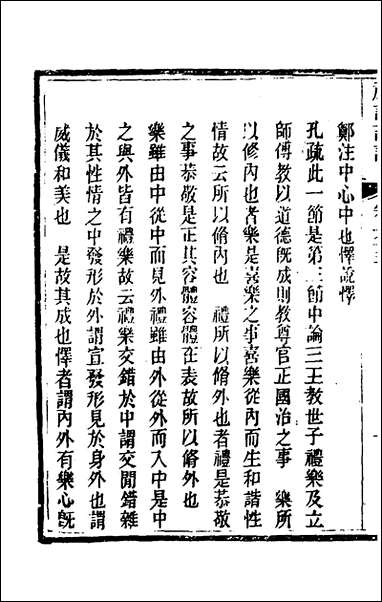 鄭注中心中也懌說懌
孔疏此一節是第三節中論三王教世子禮樂及立
師傅教以道德既成則教尊官正國治之事　樂所
以修內也者樂是喜樂之事喜樂從內而生和諧性
情故云所以脩內也　禮所以脩外也者禮是恭敬
之事恭敬是正其容體容體在表故所以脩外也
樂雖由中從中而見外禮雖由外從外而入中是中
之與外皆有禮樂故云禮樂交錯於中謂交閒錯雜
於其性情之中發形於外謂宣發形見於身外也謂
威儀和美也　是故其成也懌者謂內外有樂心既